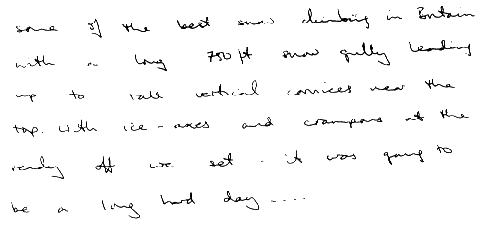 some of the best snow climbing in Britain
with a long 750 ft snow gully leading
up to vertical cornices near the
top. with ice-axes and crampons at the
ready off we set. it was going to
be a long hard day....